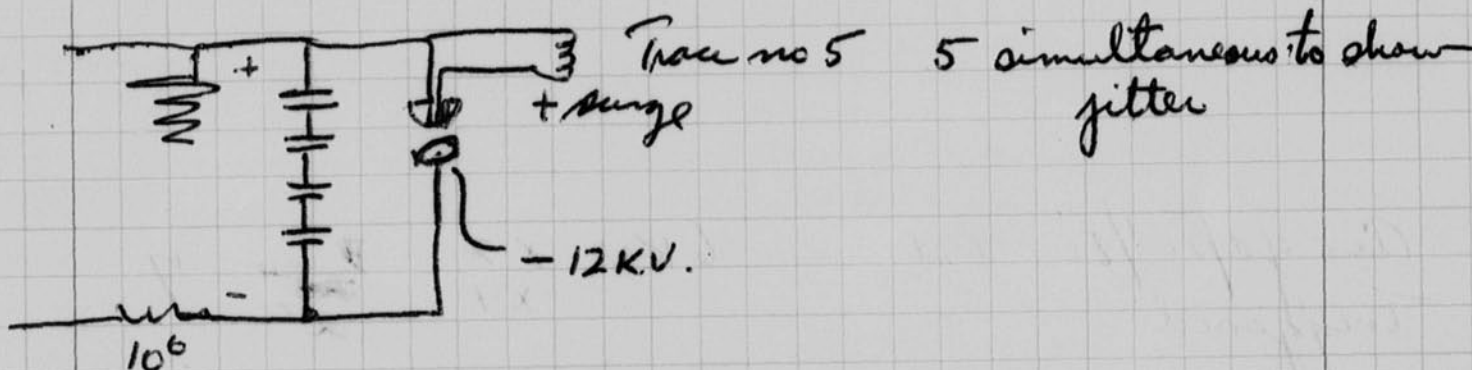 Trace no 5 5 simultaneous to show
jitter
+
+ surge
- 12 K.V.
-
10⁶